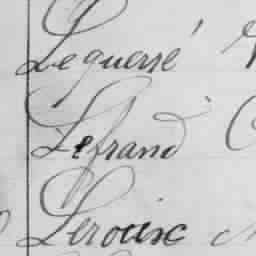 Leguerré
Lefrand
Leroux